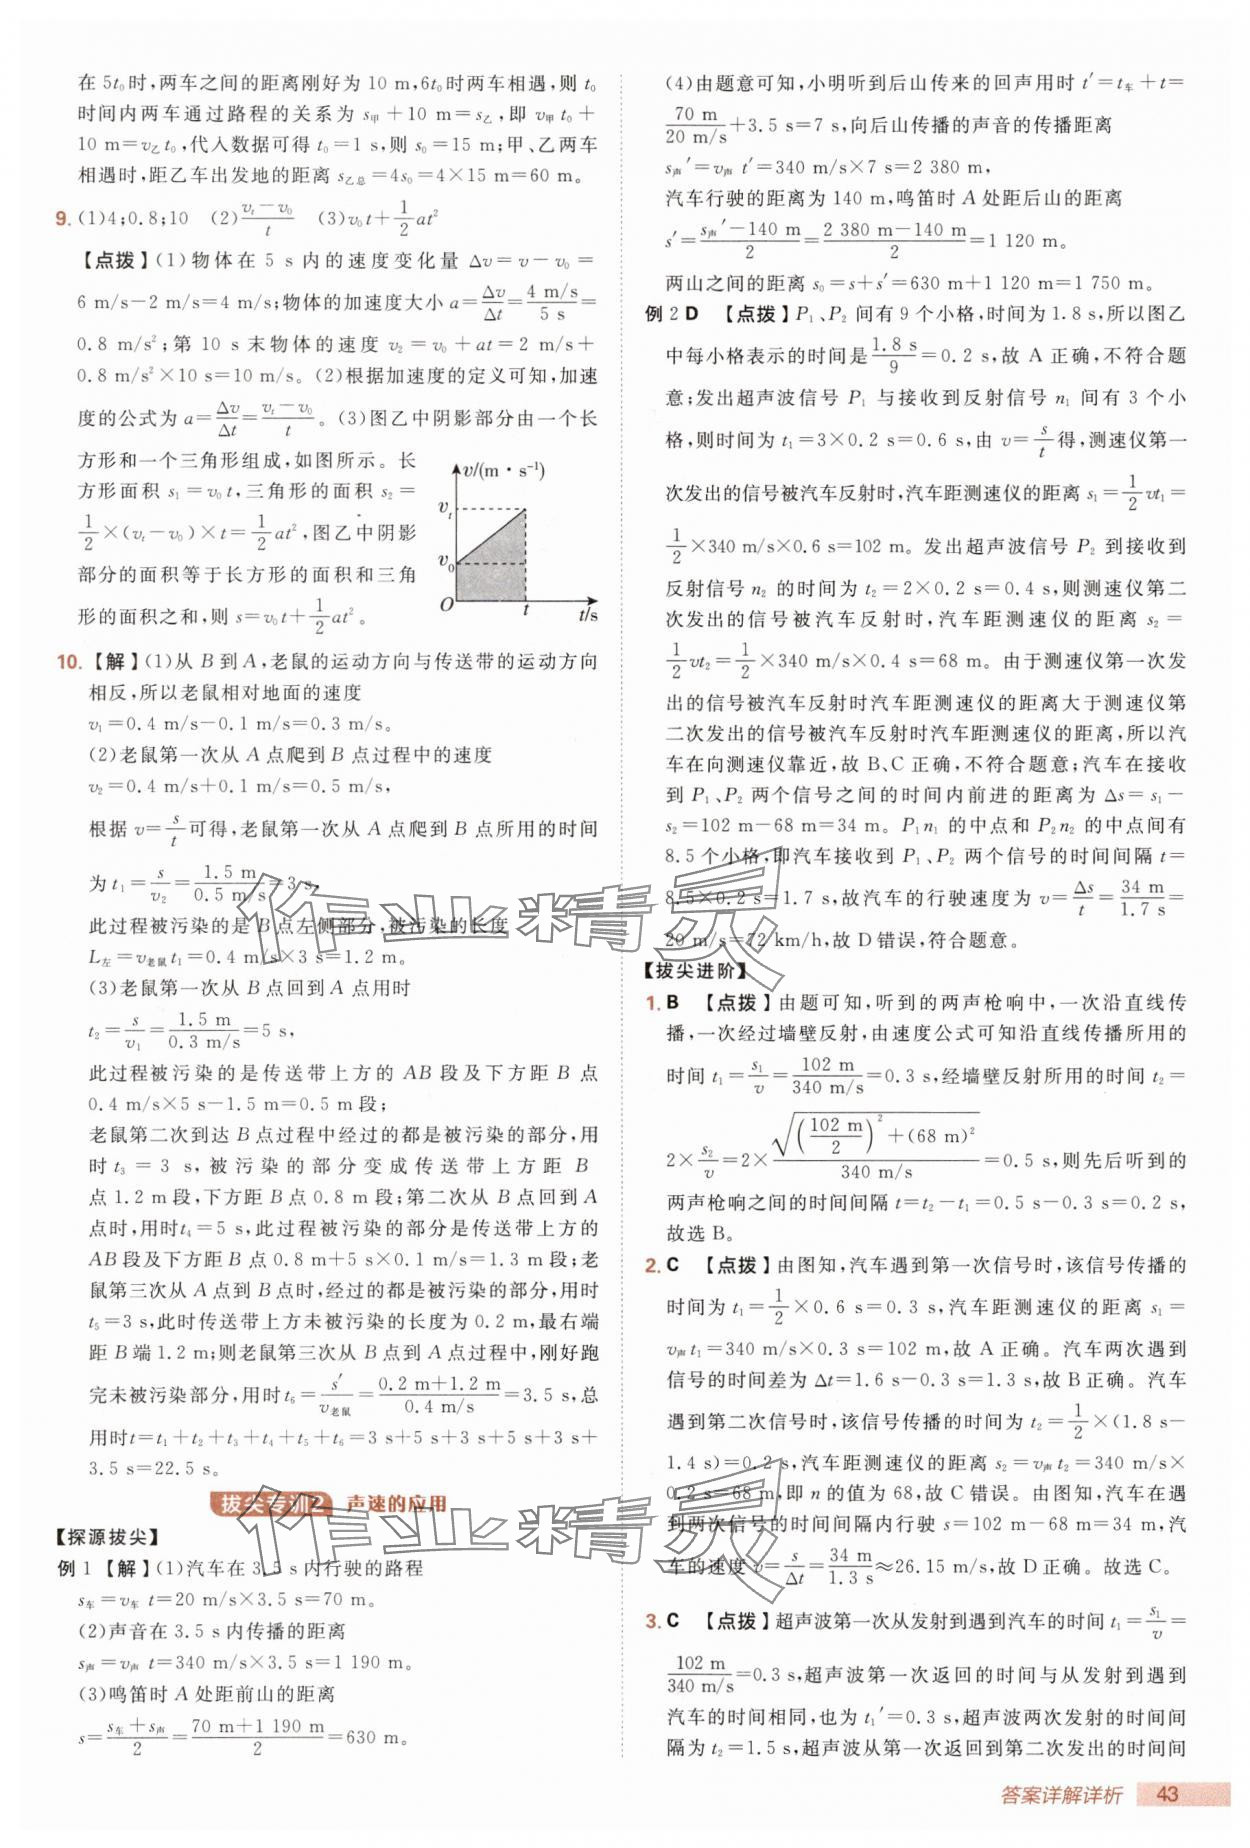 在 5t₀时,两车之间的距离刚好为 10 m,6t₀时两车相遇,则 t₀
时间内两车通过路程的关系为 s甲+10 m=s乙,即 v甲 t₀+
10 m=v乙 t₀,代入数据可得 t₀=1 s,则 s₀=15 m;甲、乙两车
相遇时,距乙车出发地的距离 s乙总=4s₀=4×15 m=60 m。
9. (1)4;0.8;10 (2)(vₜ-v₀)/t (3)v₀t+1/2 at²
【点拨】(1)物体在 5 s 内的速度变化量 Δv=v-v₀=
6 m/s-2 m/s=4 m/s;物体的加速度大小 a=Δv/Δt=(4 m/s)/(5 s)=
0.8 m/s²;第 10 s 末物体的速度 v₂=v₀+at=2 m/s+
0.8 m/s²×10 s=10 m/s。(2)根据加速度的定义可知,加速
度的公式为 a=Δv/Δt=(vₜ-v₀)/t。(3)图乙中阴影部分由一个长
方形和一个三角形组成,如图所示。长
方形面积 s₁=v₀t,三角形的面积 s₂=
1/2×(vₜ-v₀)×t=1/2 at²,图乙中阴影
部分的面积等于长方形的面积和三角
形的面积之和,则 s=v₀t+1/2 at²。
v/(m·s⁻¹)
vₜ
v₀
O t t/s
10. 【解】(1)从 B 到 A,老鼠的运动方向与传送带的运动方向
相反,所以老鼠相对地面的速度
v₁=0.4 m/s-0.1 m/s=0.3 m/s。
(2)老鼠第一次从 A 点爬到 B 点过程中的速度
v₂=0.4 m/s+0.1 m/s=0.5 m/s,
根据 v=s/t可得,老鼠第一次从 A 点爬到 B 点所用的时间
为 t₁=s/v₂=(1.5 m)/(0.5 m/s)=3 s,
此过程被污染的是 B 点左侧部分,被污染的长度
L左=v老鼠 t₁=0.4 m/s×3 s=1.2 m。
(3)老鼠第一次从 B 点回到 A 点用时
t₂=s/v₁=(1.5 m)/(0.3 m/s)=5 s,
此过程被污染的是传送带上方的 AB 段及下方距 B 点
0.4 m/s×5 s-1.5 m=0.5 m段;
老鼠第二次到达 B 点过程中经过的都是被污染的部分,用
时 t₃=3 s,被污染的部分变成传送带上方距 B
点 1.2 m 段,下方距 B 点 0.8 m 段;第二次从 B 点回到 A
点时,用时t₄=5 s,此过程被污染的部分是传送带上方的
AB 段及下方距 B 点 0.8 m+5 s×0.1 m/s=1.3 m 段;老
鼠第三次从 A 点到 B 点时,经过的都是被污染的部分,用时
t₅=3 s,此时传送带上方未被污染的长度为 0.2 m,最右端
距 B 端 1.2 m;则老鼠第三次从 B 点到 A 点过程中,刚好跑
完未被污染部分,用时 t₆=s′/v老鼠=(0.2 m+1.2 m)/(0.4 m/s)=3.5 s,总
用时t=t₁+t₂+t₃+t₄+t₅+t₆=3 s+5 s+3 s+5 s+3 s+
3.5 s=22.5 s。
拔尖专训2 声速的应用
【探源拔尖】
例 1 【解】(1)汽车在 3.5 s 内行驶的路程
s车=v车 t=20 m/s×3.5 s=70 m。
(2)声音在 3.5 s 内传播的距离
s声=v声 t=340 m/s×3.5 s=1 190 m。
(3)鸣笛时 A 处距前山的距离
s=(s车+s声)/2=(70 m+1 190 m)/2=630 m。
(4)由题意可知,小明听到后山传来的回声用时 t′=t车+t=
(70 m)/(20 m/s)+3.5 s=7 s,向后山传播的声音的传播距离
s声′=v声 t′=340 m/s×7 s=2 380 m,
汽车行驶的距离为 140 m,鸣笛时 A 处距后山的距离
s′=(s声′-140 m)/2=(2 380 m-140 m)/2=1 120 m。
两山之间的距离 s₀=s+s′=630 m+1 120 m=1 750 m。
例 2 D 【点拨】P₁、P₂ 间有 9 个小格,时间为 1.8 s,所以图乙
中每小格表示的时间是(1.8 s)/9=0.2 s,故 A 正确,不符合题
意;发出超声波信号 P₁ 与接收到反射信号 n₁ 间有 3 个小
格,则时间为 t₁=3×0.2 s=0.6 s,由 v=s/t得,测速仪第一
次发出的信号被汽车反射时,汽车距测速仪的距离 s₁=1/2 vt₁=
1/2×340 m/s×0.6 s=102 m。发出超声波信号 P₂ 到接收到
反射信号 n₂ 的时间为 t₂=2×0.2 s=0.4 s,则测速仪第二
次发出的信号被汽车反射时,汽车距测速仪的距离 s₂=
1/2 vt₂=1/2×340 m/s×0.4 s=68 m。由于测速仪第一次发
出的信号被汽车反射时汽车距测速仪的距离大于测速仪第
二次发出的信号被汽车反射时汽车距测速仪的距离,所以汽
车在向测速仪靠近,故 B、C 正确,不符合题意;汽车在接收
到 P₁、P₂ 两个信号之间的时间内前进的距离为 Δs=s₁-
s₂=102 m-68 m=34 m。P₁n₁ 的中点和 P₂n₂ 的中点间有
8.5 个小格,即汽车接收到 P₁、P₂ 两个信号的时间间隔 t=
8.5×0.2 s=1.7 s,故汽车的行驶速度为 v=Δs/t=(34 m)/(1.7 s)=
20 m/s=72 km/h,故 D 错误,符合题意。
【拔尖进阶】
1. B 【点拨】由题可知,听到的两声枪响中,一次沿直线传
播,一次经过墙壁反射,由速度公式可知沿直线传播所用的
时间 t₁=s₁/v=(102 m)/(340 m/s)=0.3 s,经墙壁反射所用的时间 t₂=
2×s₂/v=2×√((102 m/2)²+(68 m)²)/(340 m/s)=0.5 s,则先后听到的
两声枪响之间的时间间隔 t=t₂-t₁=0.5 s-0.3 s=0.2 s,
故选 B。
2. C 【点拨】由图知,汽车遇到第一次信号时,该信号传播的
时间为 t₁=1/2×0.6 s=0.3 s,汽车距测速仪的距离 s₁=
v声t₁=340 m/s×0.3 s=102 m,故 A 正确。汽车两次遇到
信号的时间差为 Δt=1.6 s-0.3 s=1.3 s,故 B正确。汽车
遇到第二次信号时,该信号传播的时间为 t₂=1/2×(1.8 s-
1.4 s)=0.2 s,汽车距测速仪的距离 s₂=v声 t₂=340 m/s×
0.2 s=68 m,即 n 的值为 68,故 C 错误。由图知,汽车遇
到两次信号的时间间隔内行驶 s=102 m-68 m=34 m,汽
车的速度 v=s/Δt=(34 m)/(1.3 s)≈26.15 m/s,故 D 正确。故选 C。
3. C 【点拨】超声波第一次从发射到遇到汽车的时间 t₁=s₁/v=
(102 m)/(340 m/s)=0.3 s,超声波第一次返回的时间与从发射到遇到
汽车的时间相同,也为 t₁′=0.3 s,超声波两次发射的时间间
隔为 t₂=1.5 s,超声波从第一次返回到第二次发出的时间间
答案详解详析 43
作业精灵
作业精灵